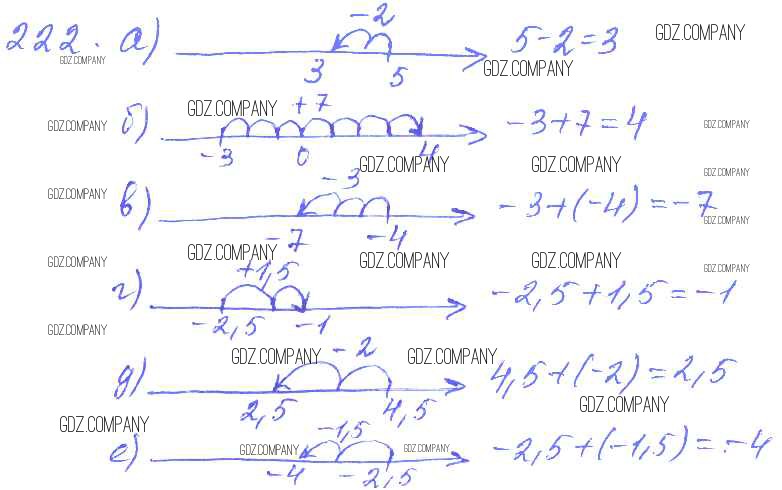 222. а) -2 3 5 5-2=3 GDZ.COMPANY
GDZ.COMPANY GDZ.COMPANY
GDZ.COMPANY +7
GDZ.COMPANY б) -3 0 4 -3+7=4 GDZ.COMPANY
GDZ.COMPANY GDZ.COMPANY GDZ.COMPANY
-3
GDZ.COMPANY в) -7 -4 -3+(-4)=-7 GDZ.COMPANY
GDZ.COMPANY
GDZ.COMPANY GDZ.COMPANY GDZ.COMPANY GDZ.COMPANY
+1,5 GDZ.COMPANY
г) -2,5 -1 -2,5+1,5=-1
GDZ.COMPANY
GDZ.COMPANY -2 GDZ.COMPANY
д) 2,5 4,5 4,5+(-2)=2,5
GDZ.COMPANY
GDZ.COMPANY -1,5
е) GDZ.COMPANY GDZ.COMPANY -2,5+(-1,5)=-4
-4 -2,5